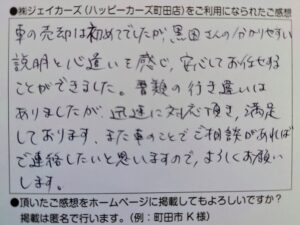 ●㈱ジェイカーズ(ハッピーカーズ町田店)をご利用になられたご感想
車の売却は初めてでしたが、黒田さんのわかりやすい
説明と心遣いを感じ、安心してお任せする
ことができました。書類の行き違いは
ありましたが、迅速に対応頂き、満足
しております。また車のことでご相談があれば
ご連絡したいと思いますので、よろしくお願い
します。
●頂いたご感想をホームページに掲載してもよろしいですか?
掲載は匿名で行います。(例:町田市K様)